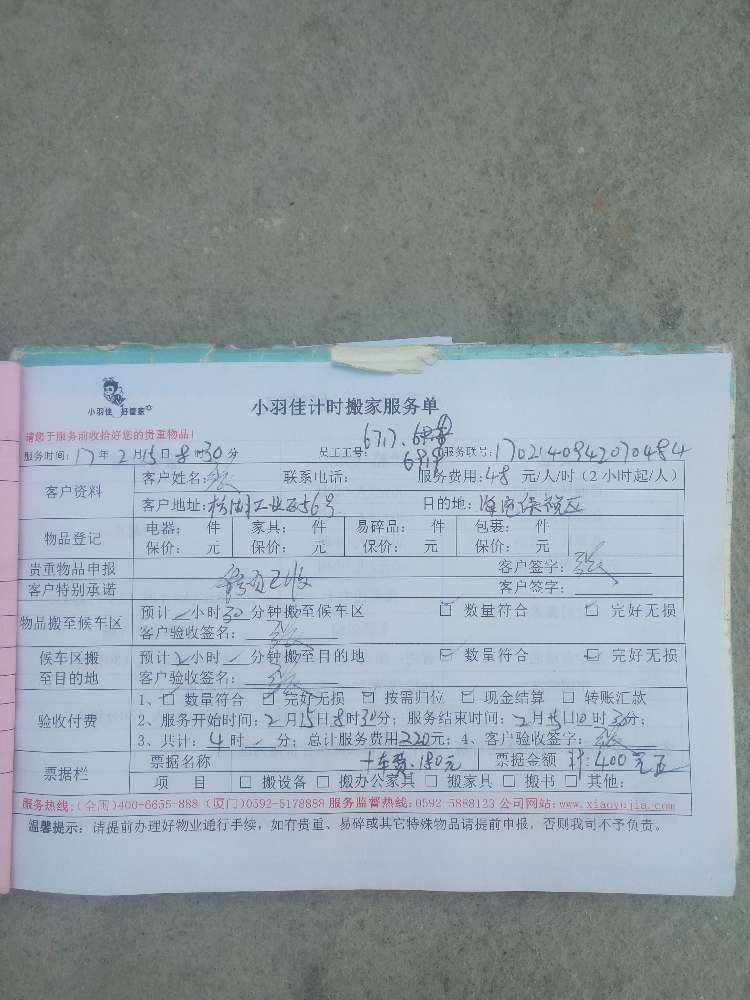 小羽佳 好管家
小羽佳计时搬家服务单
请您于服务前收拾好您的贵重物品!
服务时间:17年2月15日8时30分 员工工号: 6717、 服务联号:1702140942070484
客户资料 客户姓名:张 联系电话: 服务费用:48元/人/时（2小时起/人）
客户地址: 工业区56号 目的地: 保税区
物品登记 电器: 件 家具: 件 易碎品: 件 包裹: 件
保价: 元 保价: 元 保价: 元 保价: 元
贵重物品申报 客户签字:张
客户特别承诺 客户签字:
物品搬至候车区 预计 小时30分钟搬至候车区 ☑ 数量符合 □ 完好无损
客户验收签名: 张
候车区搬至目的地 预计2小时 分钟搬至目的地 ☑ 数量符合 ☑ 完好无损
客户验收签名: 张
验收付费 1、☑ 数量符合 ☑ 完好无损 ☑ 按需归位 ☑ 现金结算 □ 转账汇款
2、服务开始时间:2月15日8时30分; 服务结束时间:2月15日 时 分;
3、共计:4时 分; 总计服务费用220元; 4、客户验收签字:张
票据栏 票据名称 +车费:180元 票据金额 计:400元正
项 目 □ 搬设备 □ 搬办公家具 □ 搬家具 □ 搬书 □ 其他:
服务热线:(全国)400-6655-888 (厦门)0592-5178888 服务监督热线:0592-5888123 公司网站:www.xiaoyujia.com
温馨提示: 请提前办理好物业通行手续，如有贵重、易碎或其它特殊物品请提前申报，否则我司不予负责。